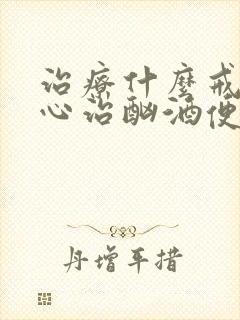 治療什麼戒
心治酗酒便
丹增平措